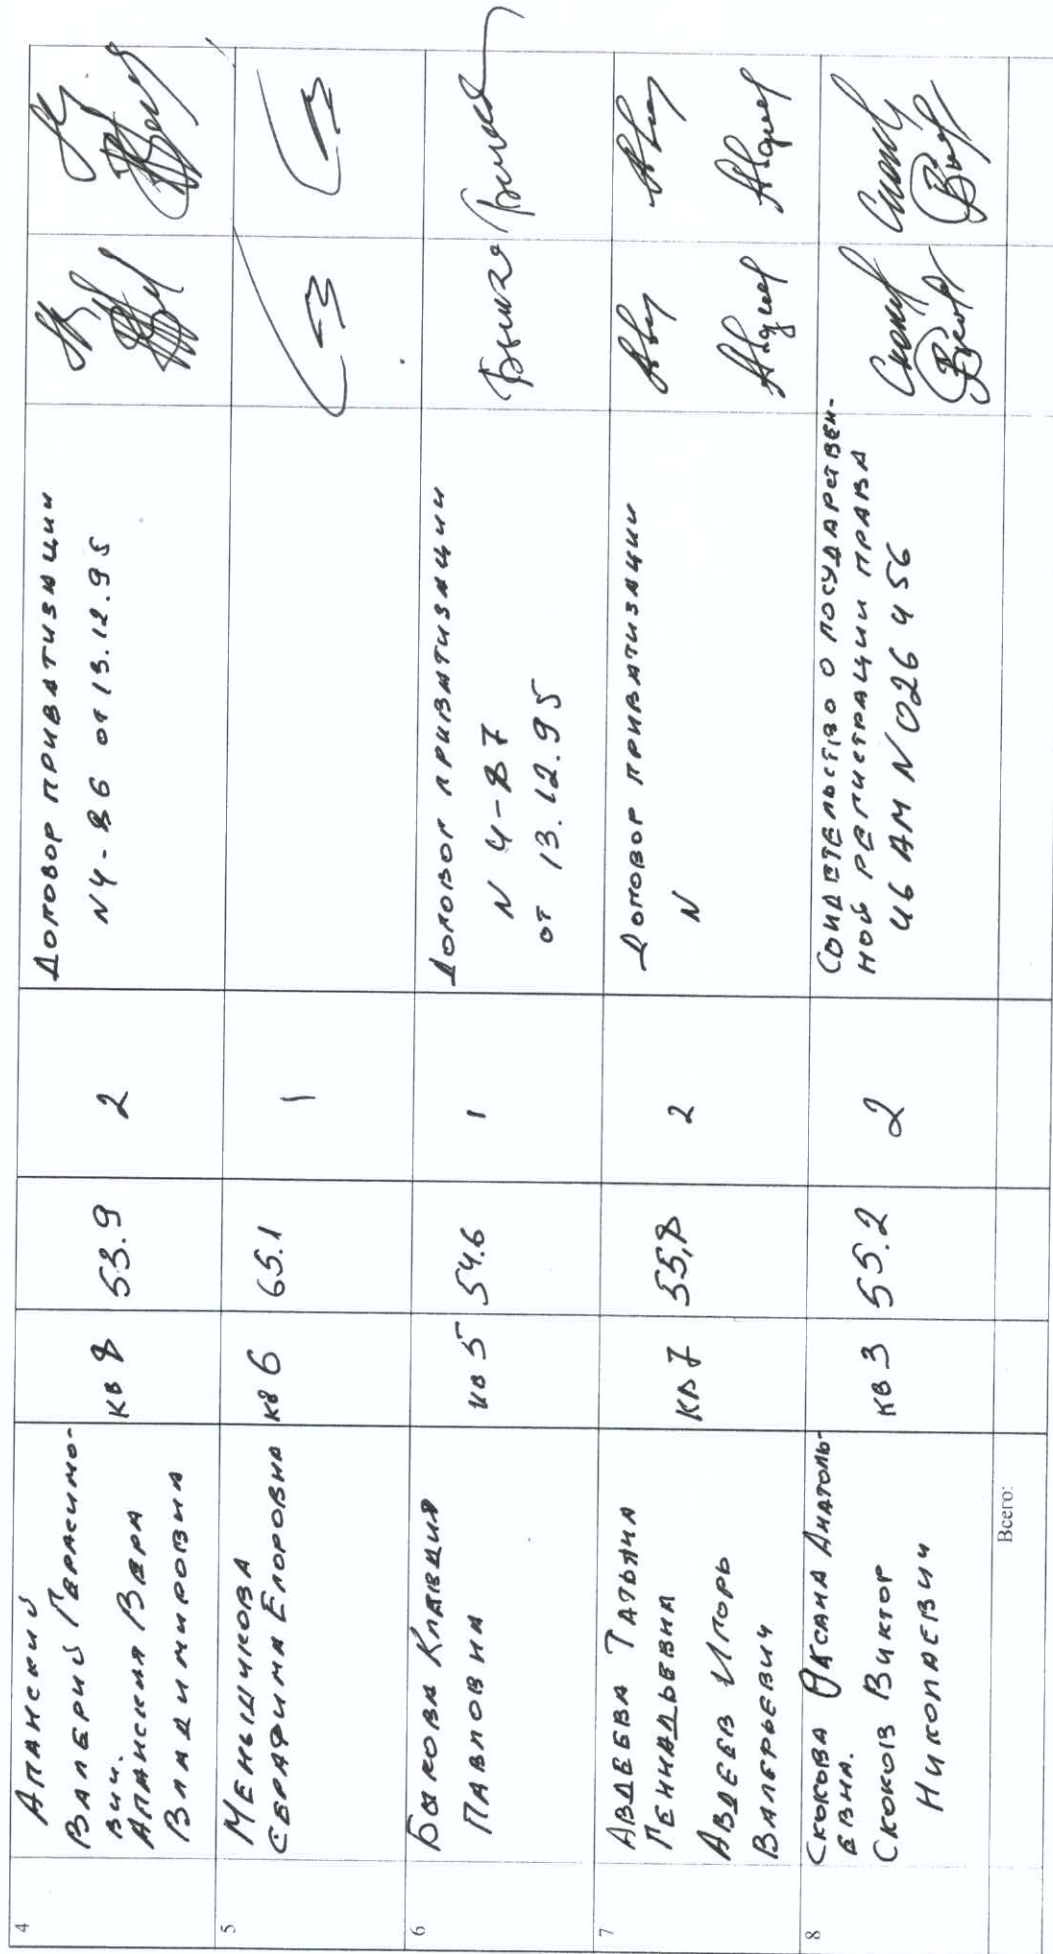 4
Апанский
Валерий Герасимо-
вич.
Апанская Вера
Владимировна
кв 8
53.9
2
Договор приватизации
N4-86 от 13.12.95
5
Меньшикова
Серафима Егоровна
кв 6
65.1
1
6
Быкова Клавдия
Павловна
кв 5
54.6
1
Договор приватизации
N 4-87
от 13.12.95
7
Авдеева Татьяна
Геннадьевна
Авдеев Игорь
Валерьевич
кв 7
55,8
2
Договор приватизации
N
8
Скокова Оксана Анатоль-
евна.
Скоков Виктор
Николаевич
кв 3
55.2
2
Свидетельство о государствен-
ной регистрации права
46 АМ N 026456
Всего: